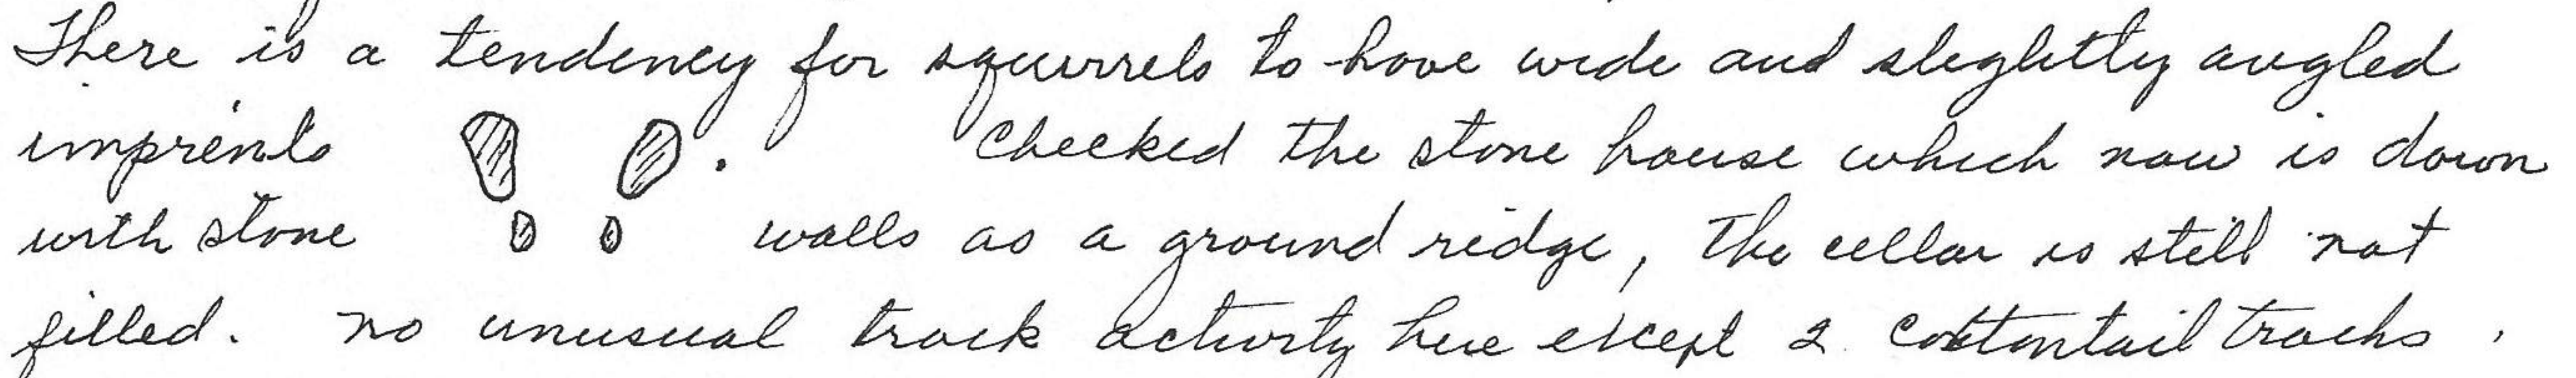 There is a tendency for squirrels to have wide and slightly angled
imprints . Checked the stone house which now is down
with stone walls as a ground ridge, the cellar is still not
filled. no unusual track activity here except 2 cottontail tracks.